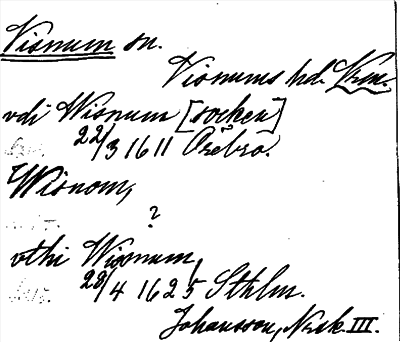 Visnum sn.
Visnums hd. Vrm.
vdi Wisnum [socken]
22/3 1611 Örebro.
Wisnom,
?
vthi Wisnum,
28/4 1625 Sthlm.
Johansson, Nork. III.